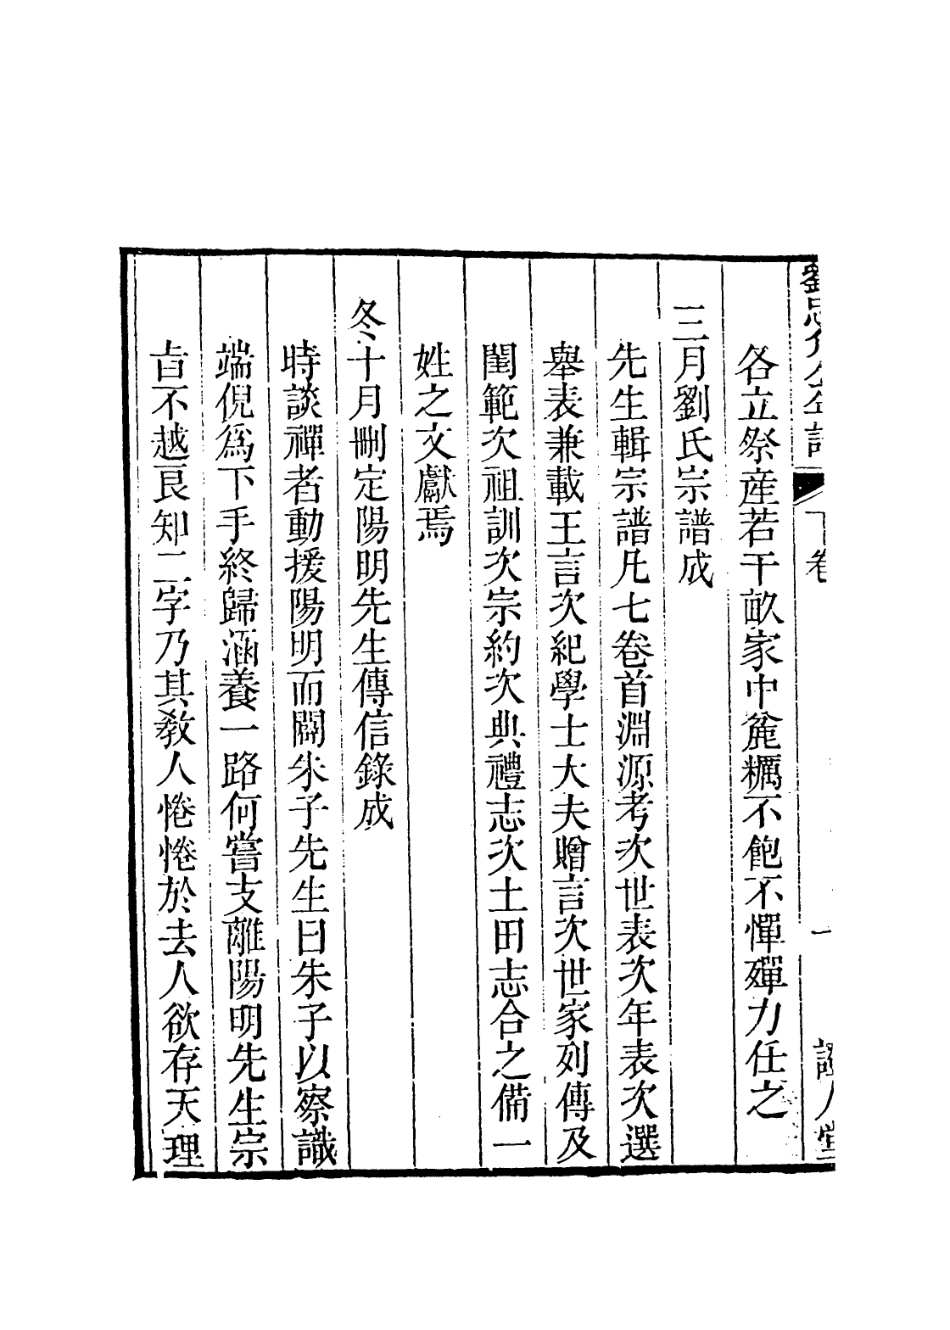 各立祭産若干畝家中麄糲不飽不憚殫力任之
三月劉氏宗譜成
先生輯宗譜凡七卷首淵源考次世表次年表次選
舉表兼載王言次紀學士大夫贈言次世家列傳及
閨範次祖訓次宗約次典禮志次土田志合之備一
姓之文獻焉
冬十月刪定陽明先生傳信錄成
時談禪者動援陽明而闢朱子先生曰朱子以察識
端倪爲下手終歸涵養一路何嘗支離陽明先生宗
旨不越良知二字乃其敎人惓惓於去人欲存天理